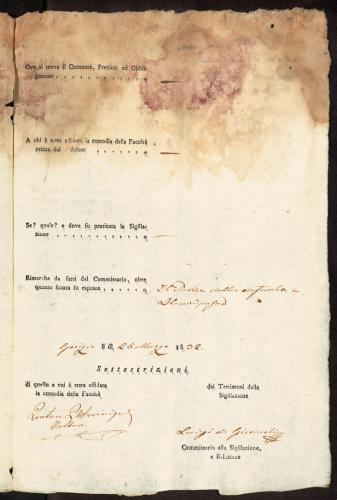 Ove si trova il Contante, Preziosi ed Obbli-
gazioni . . . . . . . . . . . „ —
A chi è stata affidata la custodia della Facoltà
relitta dal defonto . . . . . . . „ —
Se? quale? e dove fu praticata la Sigilla-
zione . . . . . . . . . . . . „ —
Rimarche da farsi dal Commissario, oltre
quanto finora fu esposto . . . . . „
Gorizia li 26 Marzo 1832.
Sottoscrizioni
di quello a cui è stata affidata
la custodia della Facoltà
dei Testimoni della
Sigillazione
Luigi de
Commissario alla Sigillazione,
e Relazione